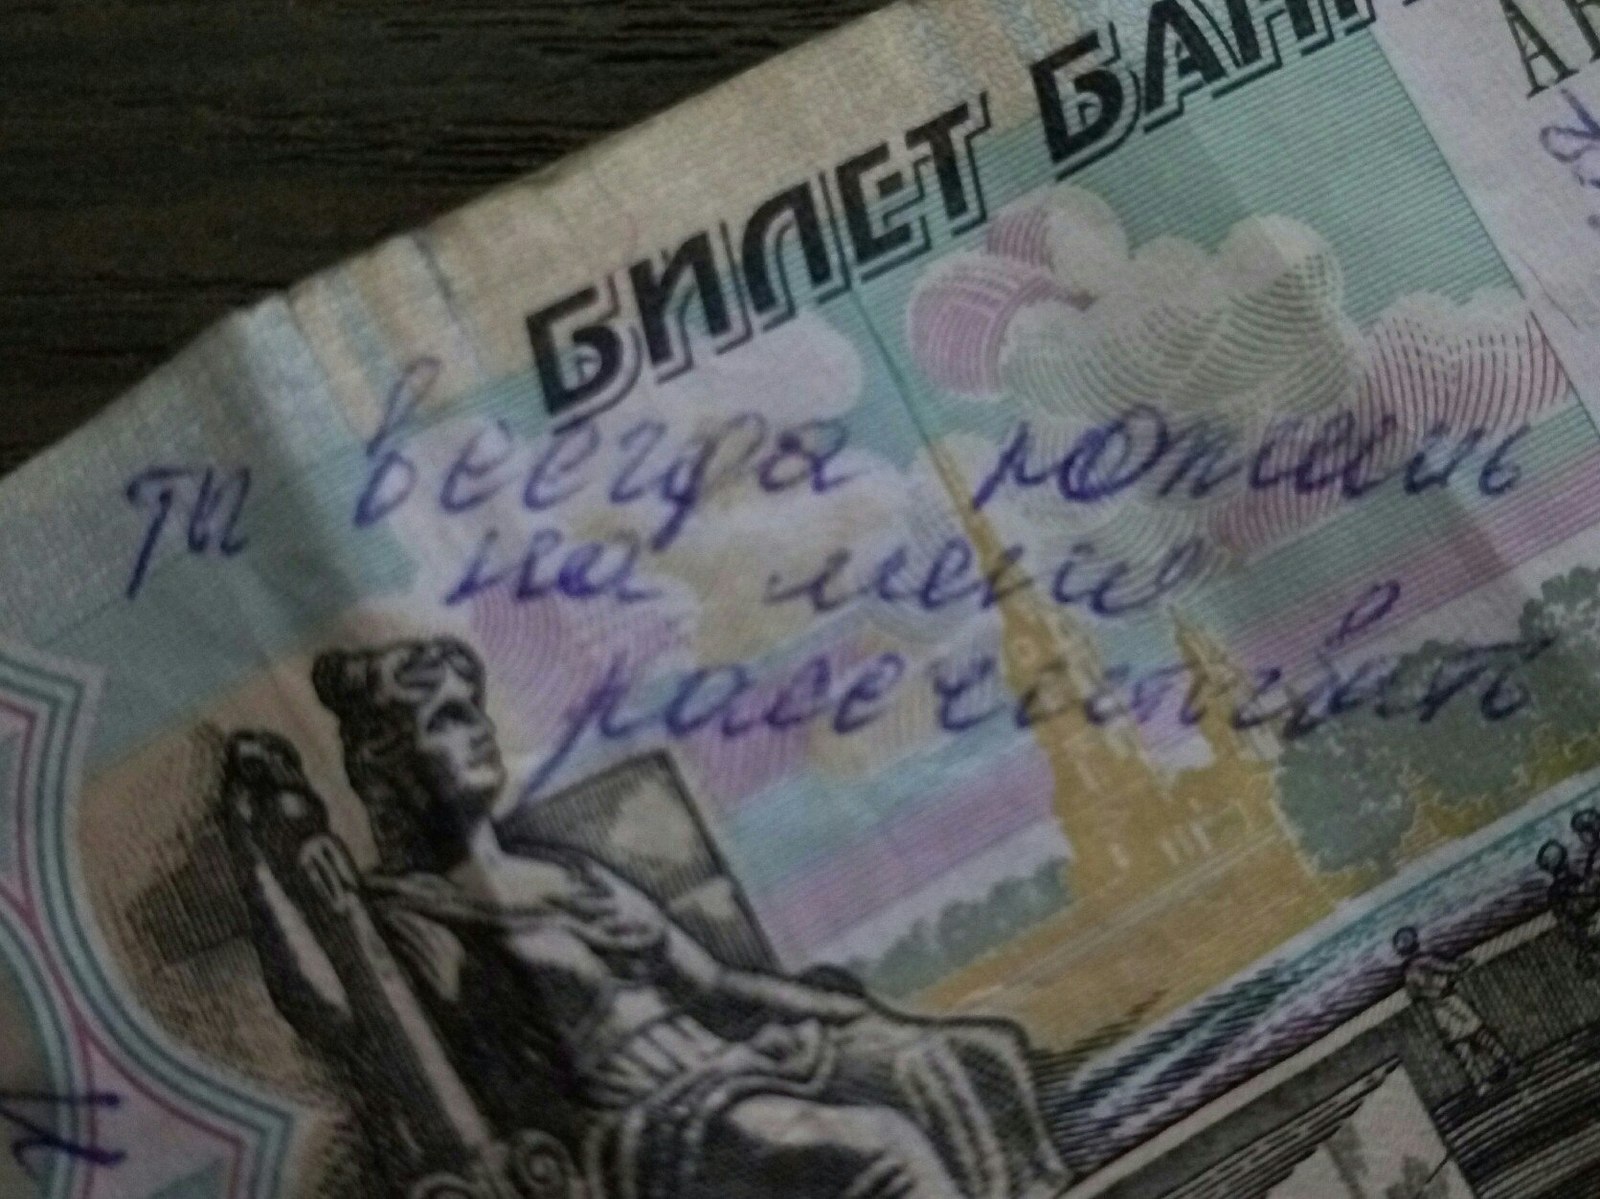 БИЛЕТ БАН
ты всегда можешь
на меня
рассчитывать